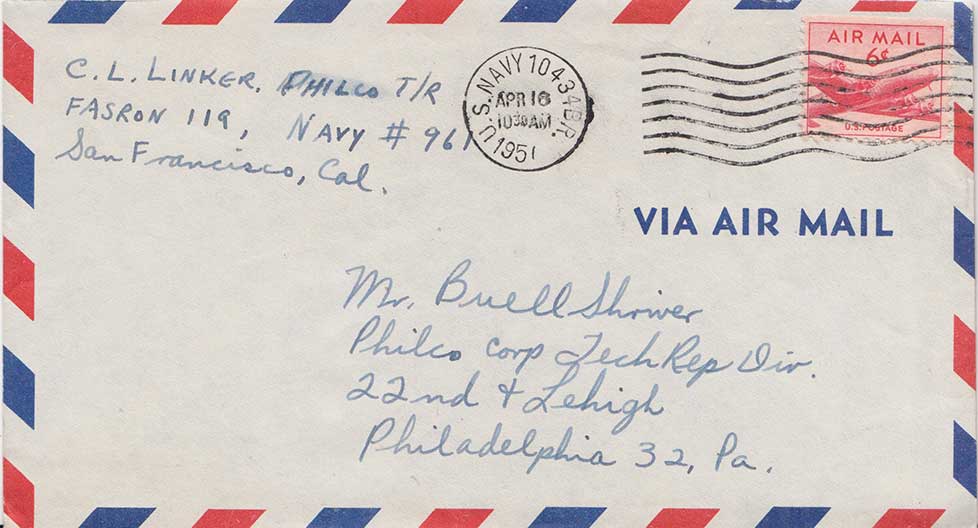 C. L. LINKER, PHILCO T/R
FASRON 119, NAVY # 961
San Francisco, Cal.
U.S. NAVY 10434 BR.
APR 16
1030 AM
1951
AIR MAIL
6¢
U.S. POSTAGE
VIA AIR MAIL
Mr. Buell Shriver
Philco Corp Tech Rep Div.
22nd & Lehigh
Philadelphia 32, Pa.